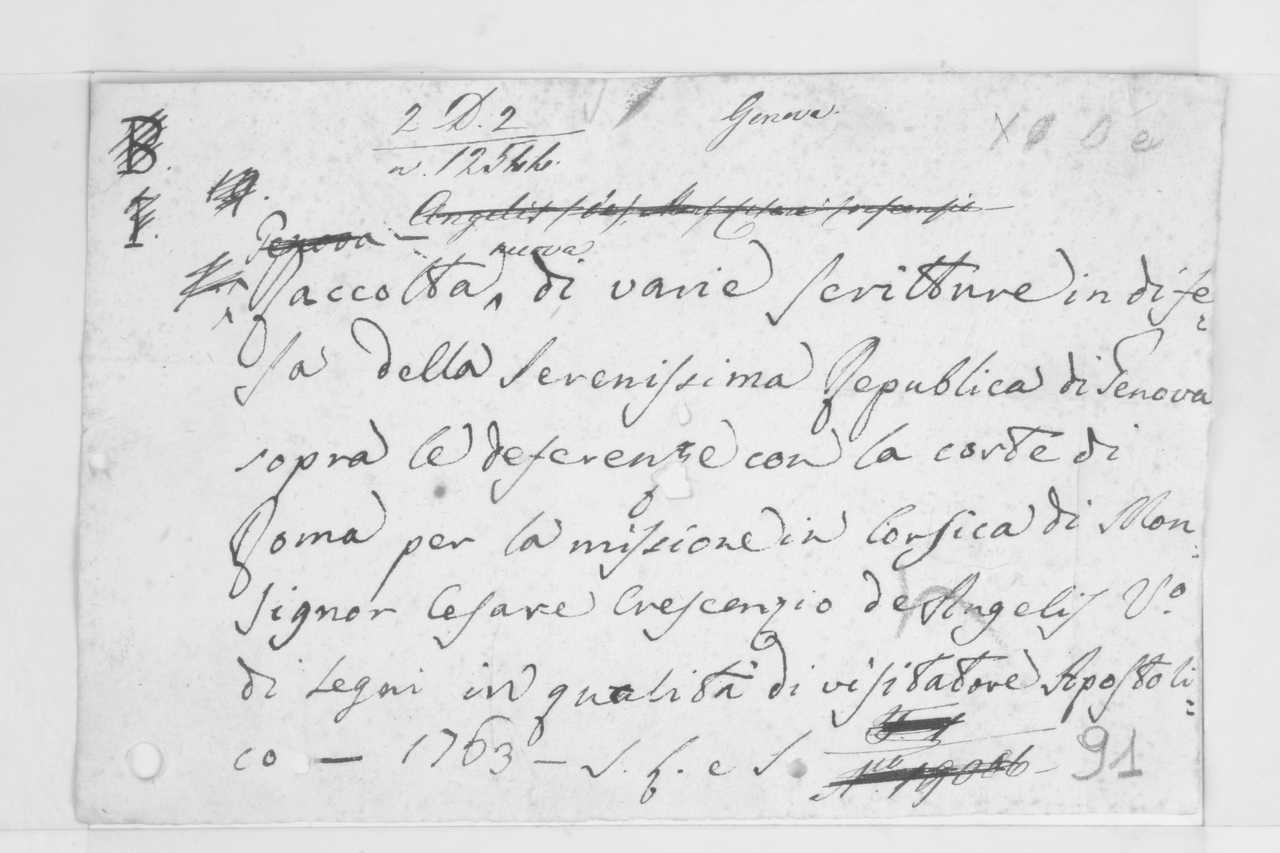 2 D. 2
Genova
n. 12544.
B.
Genova —
nuova
Raccolta di varie scritture in dife=
sa della Serenissima Republica di Genova
sopra le deferenze con la corte di
Roma per la missione in Corsica di Mon=
signor Cesare Crescenzio de Angelis V.º
di Segni in qualità di visitatore Apostoli=
co — 1763 — s. f. e s
91